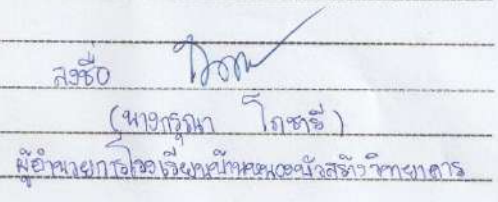 ลงชื่อ
(นางกรุณา โภชารี)
ผู้อำนวยการโรงเรียนบ้านหนองบัวสร้างวิทยาคาร